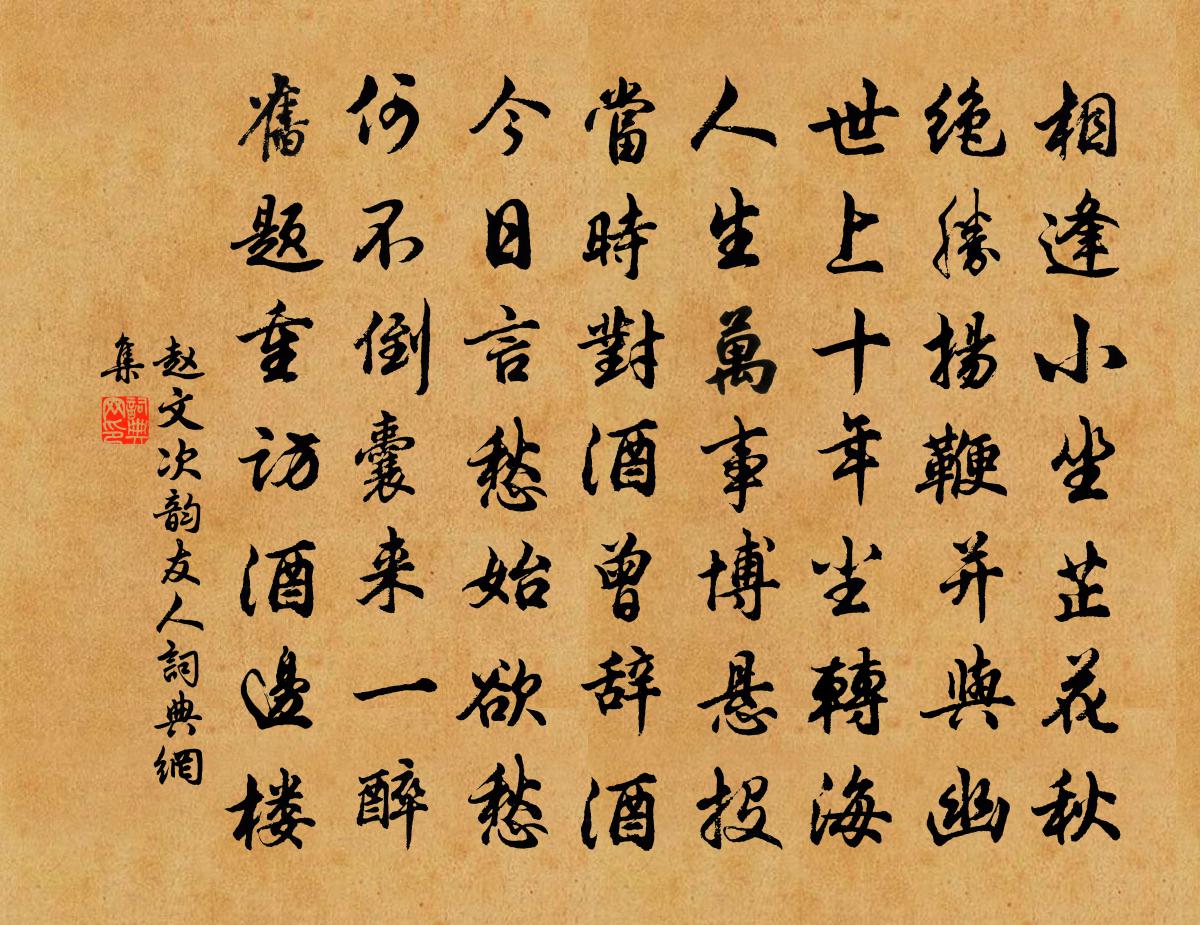 相逢小坐芷花秋
绝勝揚鞭并與幽
世上十年尘轉海
人生萬事博悬投
當時對酒曾辞酒
今日言愁始欲愁
何不倒囊来一醉
舊题重访酒邊楼
赵文次韵友人詞典網
集
詞典
网印